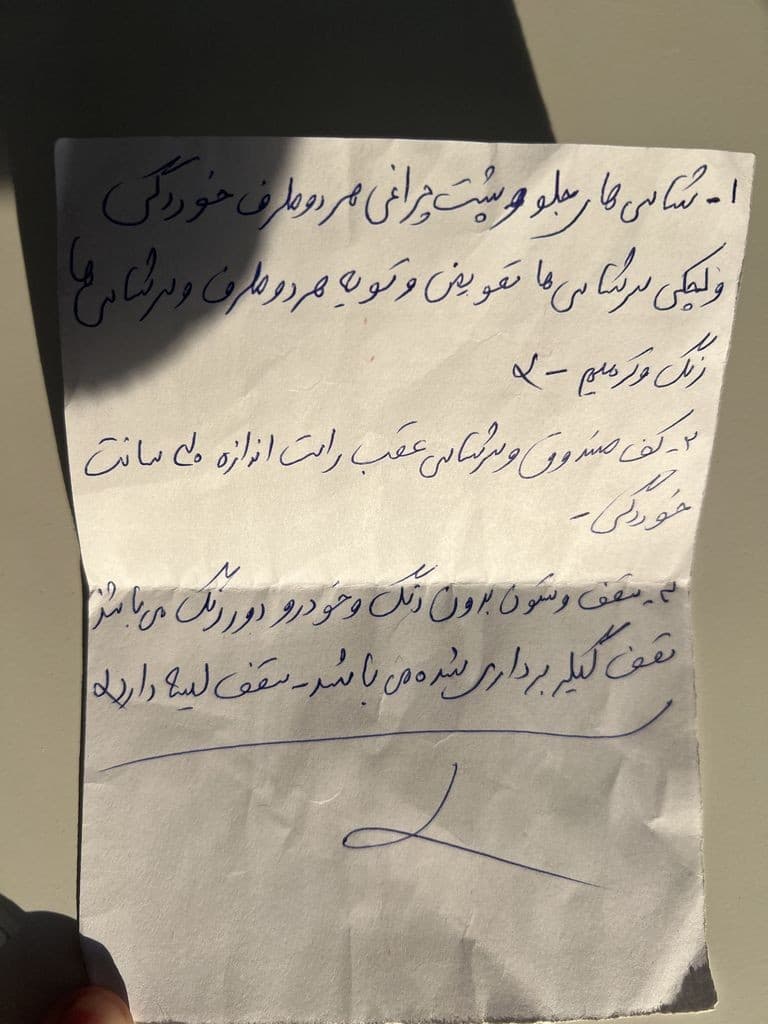 ۱- شاسی های جلو و پشت چراغی هر دو طرف خوردگی
و لچکی سرشاسی ها تعویض و تویه هر دو طرف و سرشاسی ها
رنگ و ترمیم -
۲- کف صندوق و سرشاسی عقب راست اندازه سانت
خوردگی -
۳- سقف و ستون بدون رنگ و خودرو دور رنگ می باشد
سقف گیلر برداری شده می باشد - سقف لیسه دارد